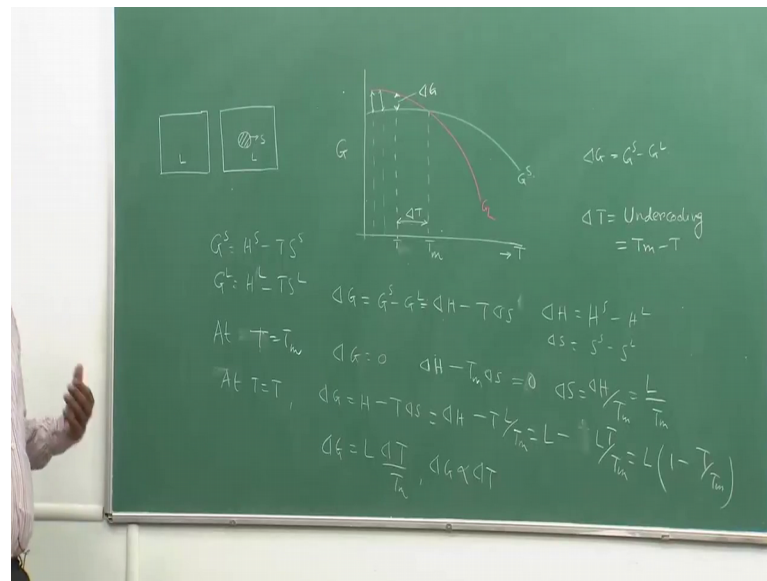 L
S
L
G
ΔG
G^S
G_L
ΔT
T
T_m
→ T
ΔG = G^S - G^L
ΔT = Undercooling
= T_m - T
G^S = H^S - TS^S
G^L = H^L - TS^L
ΔG = G^S - G^L = ΔH - TΔS
ΔH = H^S - H^L
ΔS = S^S - S^L
At T = T_m
ΔG = 0 ΔH - T_mΔS = 0 ΔS = ΔH/T_m = L/T_m
At T = T, ΔG = H - TΔS = ΔH - T L/T_m = L - LT/T_m = L(1 - T/T_m)
ΔG = L ΔT/T_m, ΔG ∝ ΔT